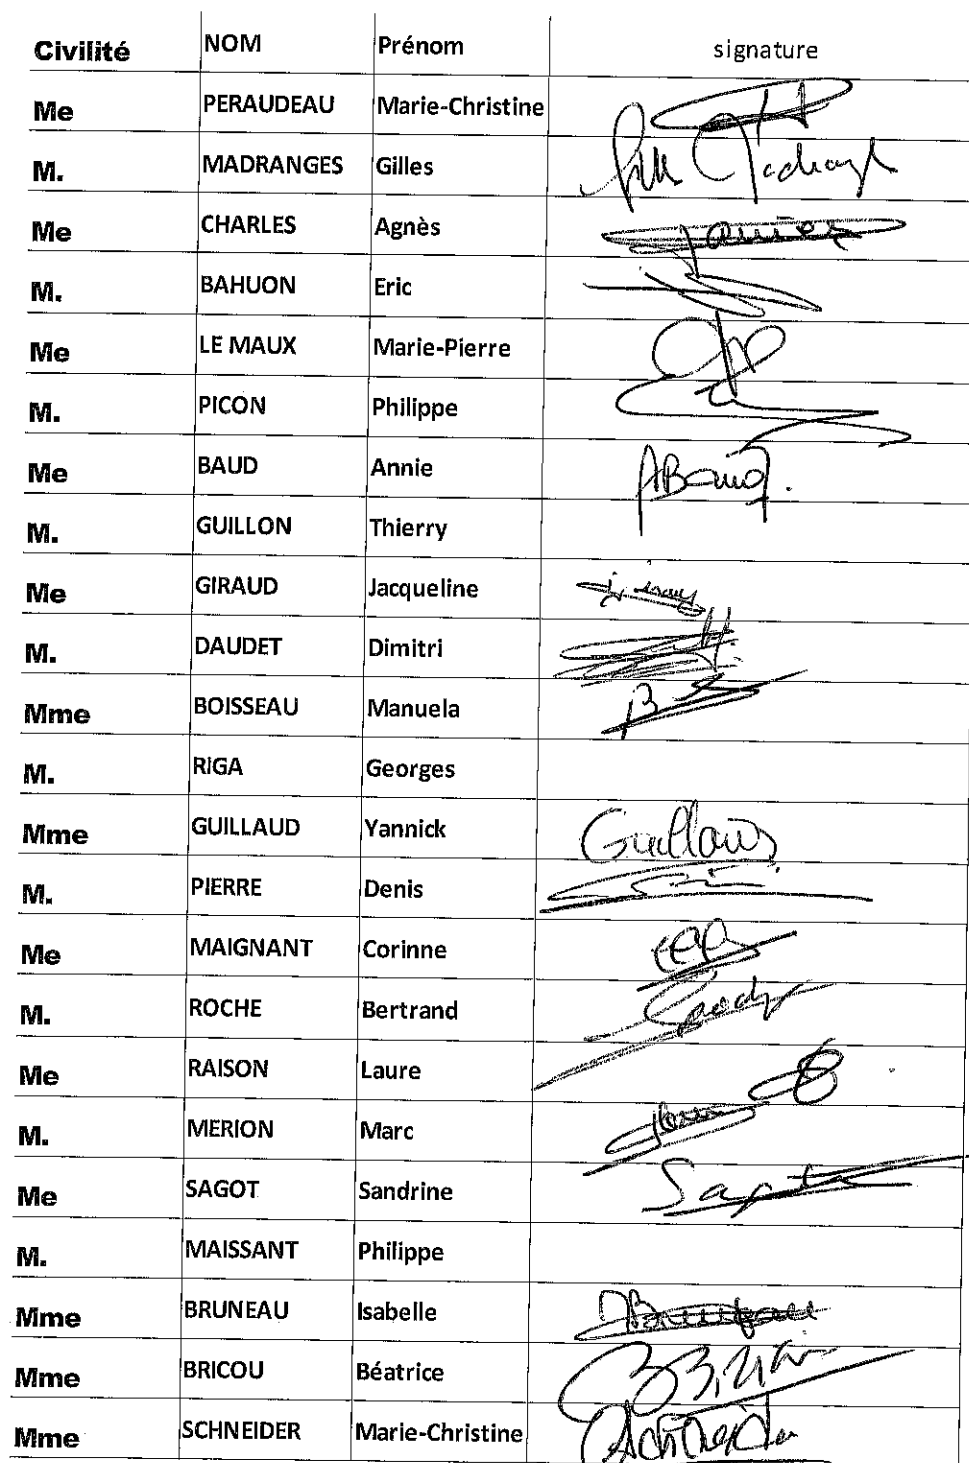 Civilité NOM Prénom signature
Me PERAUDEAU Marie-Christine
M. MADRANGES Gilles
Me CHARLES Agnès
M. BAHUON Eric
Me LE MAUX Marie-Pierre
M. PICON Philippe
Me BAUD Annie ABaud.
M. GUILLON Thierry
Me GIRAUD Jacqueline
M. DAUDET Dimitri
Mme BOISSEAU Manuela
M. RIGA Georges
Mme GUILLAUD Yannick Guillaud
M. PIERRE Denis
Me MAIGNANT Corinne
M. ROCHE Bertrand
Me RAISON Laure
M. MERION Marc
Me SAGOT Sandrine Sagot
M. MAISSANT Philippe
Mme BRUNEAU Isabelle
Mme BRICOU Béatrice
Mme SCHNEIDER Marie-Christine